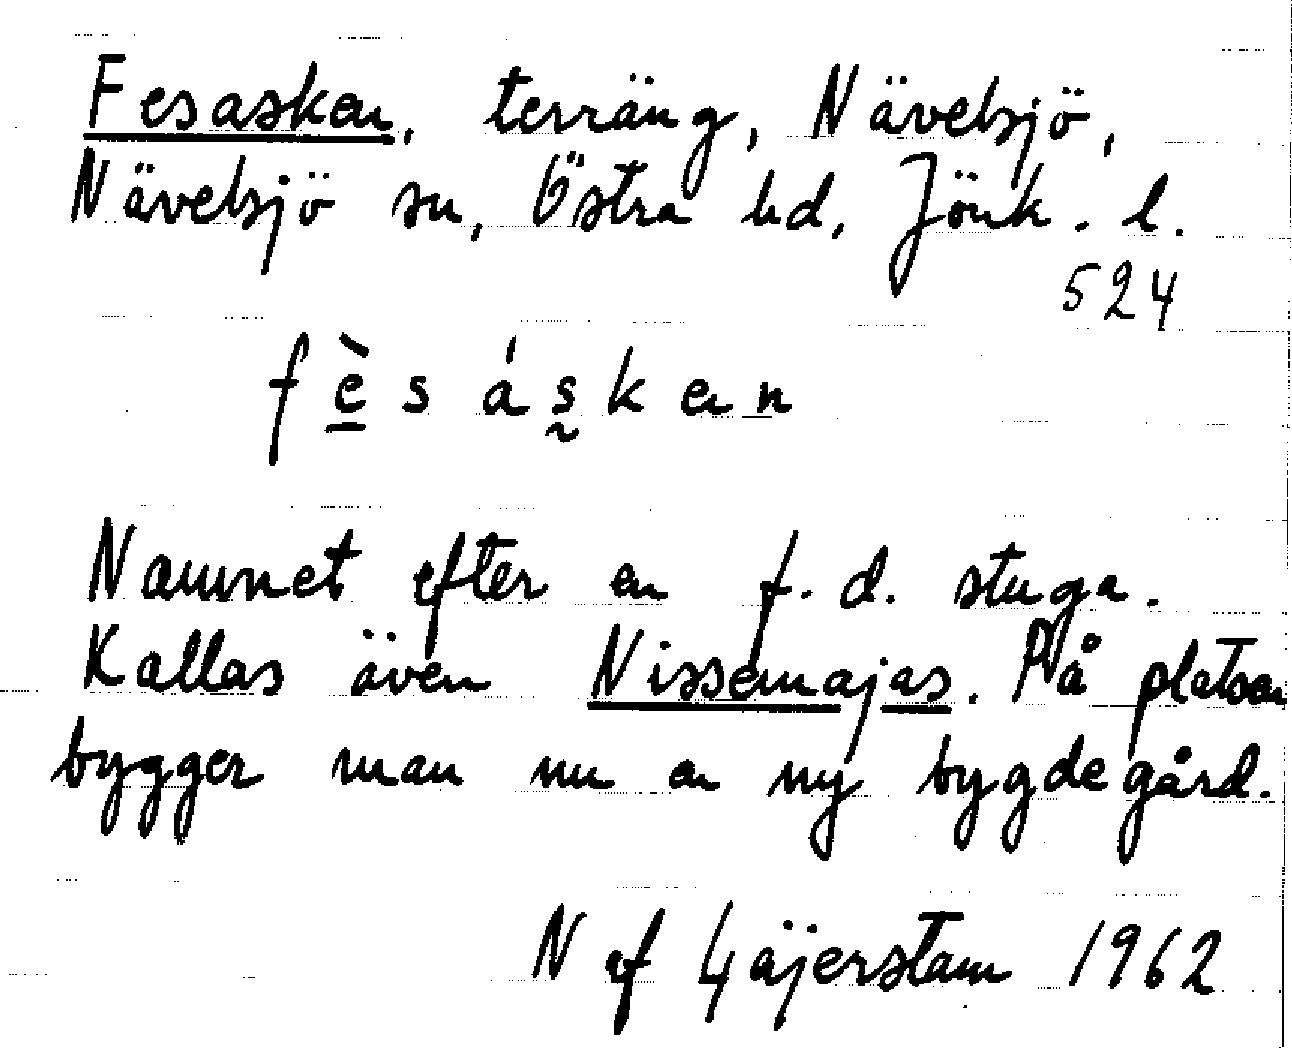 Fesasken, terräng, Nävelsjö,
Nävelsjö sn, Östra hd, Jönk. l.
524
fè̲sás̰ken
Namnet efter en f.d. stuga.
Kallas även Nissemajas. På platsen
bygger man nu en ny bygdegård.
N af Gäjerstam 1962